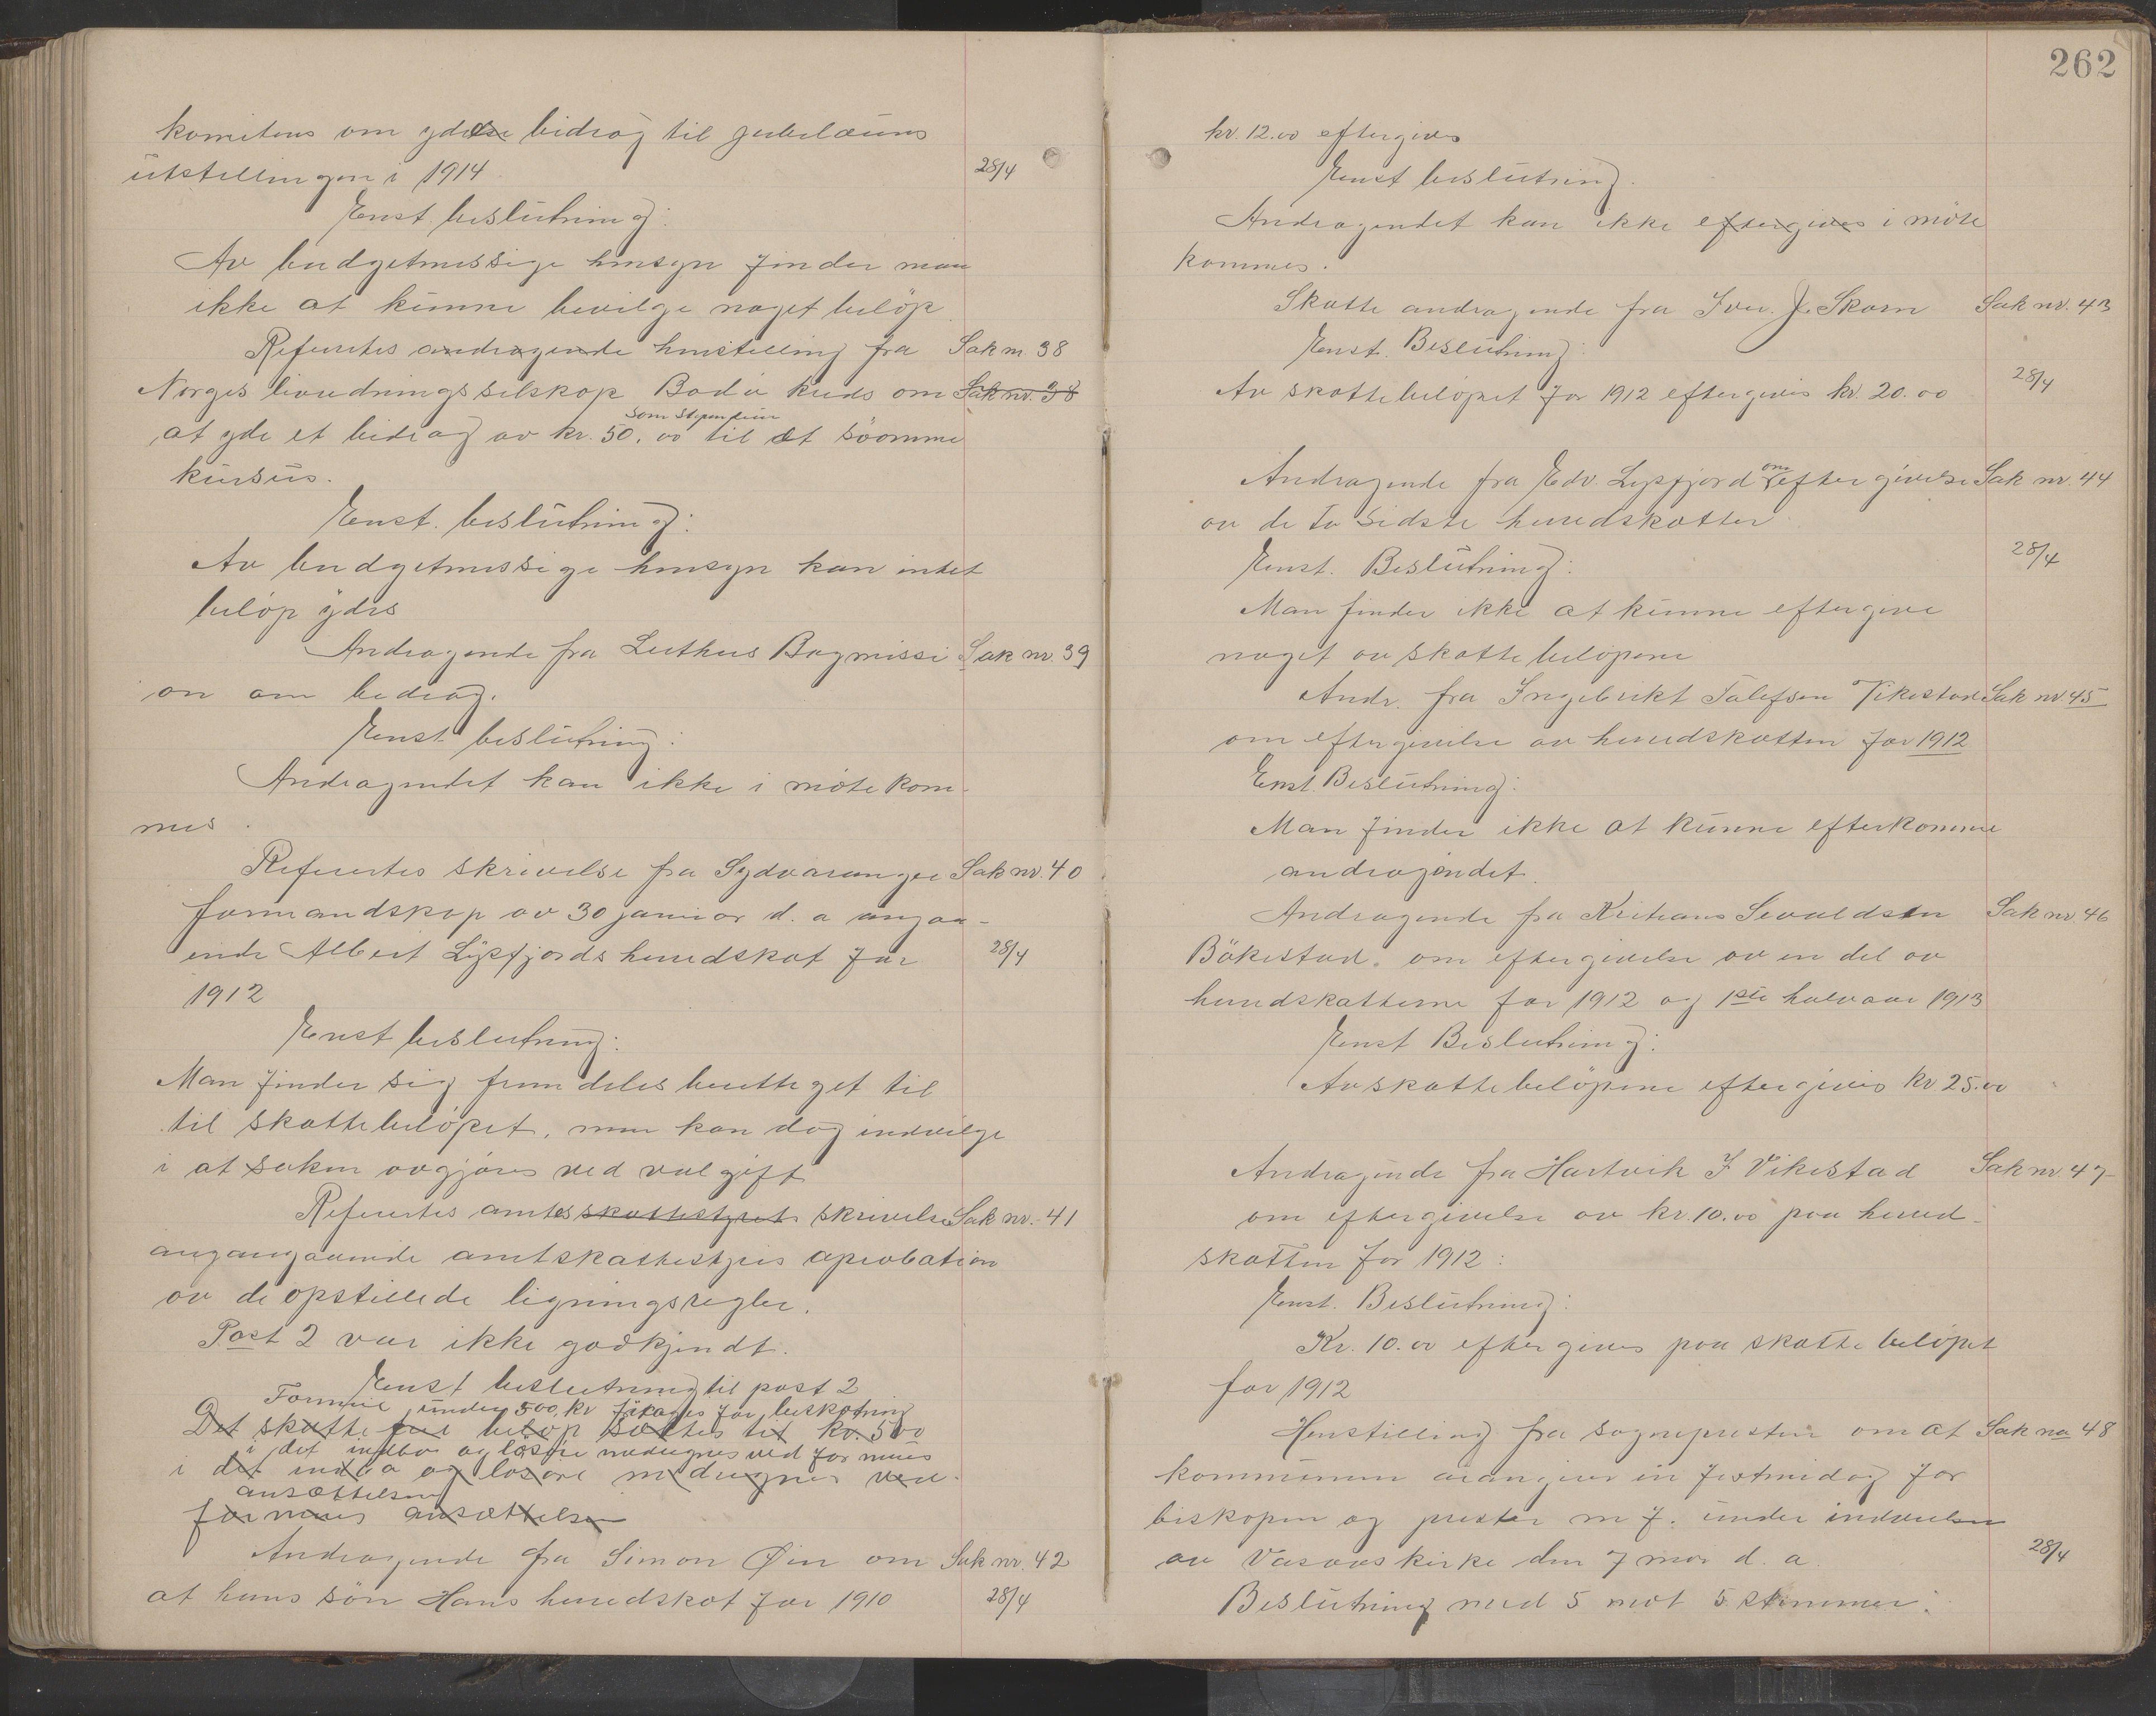 komiteus om yde bidrag til jubelæums
utstellingen i 1914 28/4
Enst. beslutning:
Av budgetmessige hinsyn finder man
ikke at kunne bevilge noget beløp
Refertes andragende henstilling fra Sak nr 38
Norges livredningsselskap Bodø kreds om Sak nr. 38
som stipendium
at yde et bidrag av kr. 50.00 til et svømme
kursus.
Enst. beslutning:
Av budgetmessige hinsyn kan intet
beløp ydes
Andragende fra Luthers Bogmissi Sak nr. 39
on om bedrag.
Enst beslutning:
Andragendet kan ikke i møte kom-
mes.
Refertes skrivelse fra Sydvaranger Sak nr. 40
formandskap av 30 januar d. a angaa-
ende Albert Lysfjords herredskat for 28/4
1912
Enst beslutning:
Man finder sig fremdeles berettiget til
til skattebeløpet, men kan dog indvilge
i at saken avgjøres ved volgift
Refertes amtets skattestyrets skrivelse Sak nr. 41
angangaaende amtskattestyres aprobation
av de opstillede ligningsregler.
Post 2 var ikke godkjendt.
Enst beslutning til post 2
Formue under 500, kr fitages for beskatning
Det skatte frie beløp sættes til kr. 500
i det indbo og løsøre medregnes ved formues
i det indbo og løsøre medregnes ved
ansættelsen
formues ansættelsen
Andragende fra Simon Øien om Sak nr. 42
at hans søn Hans herredskat for 1910 28/4
262
kr. 12.00 eftergives
Enst beslutning.
Andragendet kan ikke eftergives i møte
kommes.
Skatte andragende fra Iver J. Skarn Sak nr. 43
Enst. Beslutning:
Av skattebeløpet for 1912 eftergives kr. 20.00 28/4
om
Andragende fra Edv. Lysfjord eftergivelse Sak nr. 44
av de to sidste herredskatter
Enst. Beslutning: 28/4
Man finder ikke at kunne eftergive
noget av skattebeløpene
Andr. fra Ingebrikt Tolefsen Vikestad Sak nr. 45
om eftergivelse av herredskatten for 1912
Enst. Beslutning:
Man finder ikke at kunne efterkomme
andragendet.
Andragende fra Kristians Sevaldsen Sak nr. 46
Bøkestad. om eftergivelse av en del av
herredskatterne for 1912 og 1ste halvaar 1913
Enst Beslutning:
Av skattebeløpene eftergives kr 25.00
Andragende fra Hartvik I Vikestad Sak nr. 47
om eftergivelse av kr. 10.00 paa herred-
skatten for 1912:
Enst. Beslutning:
Kr. 10.00 eftergives paa skatte beløpet
for 1912
Henstilling fra sognepresten om at Sak no 48
kommunen arangerer en festmidag for
biskopen og prester m f. under indvielsen
av Vasaas kirke den 7 mai d. a. 28/4
Beslutning med 5 mot 5 stemmer: